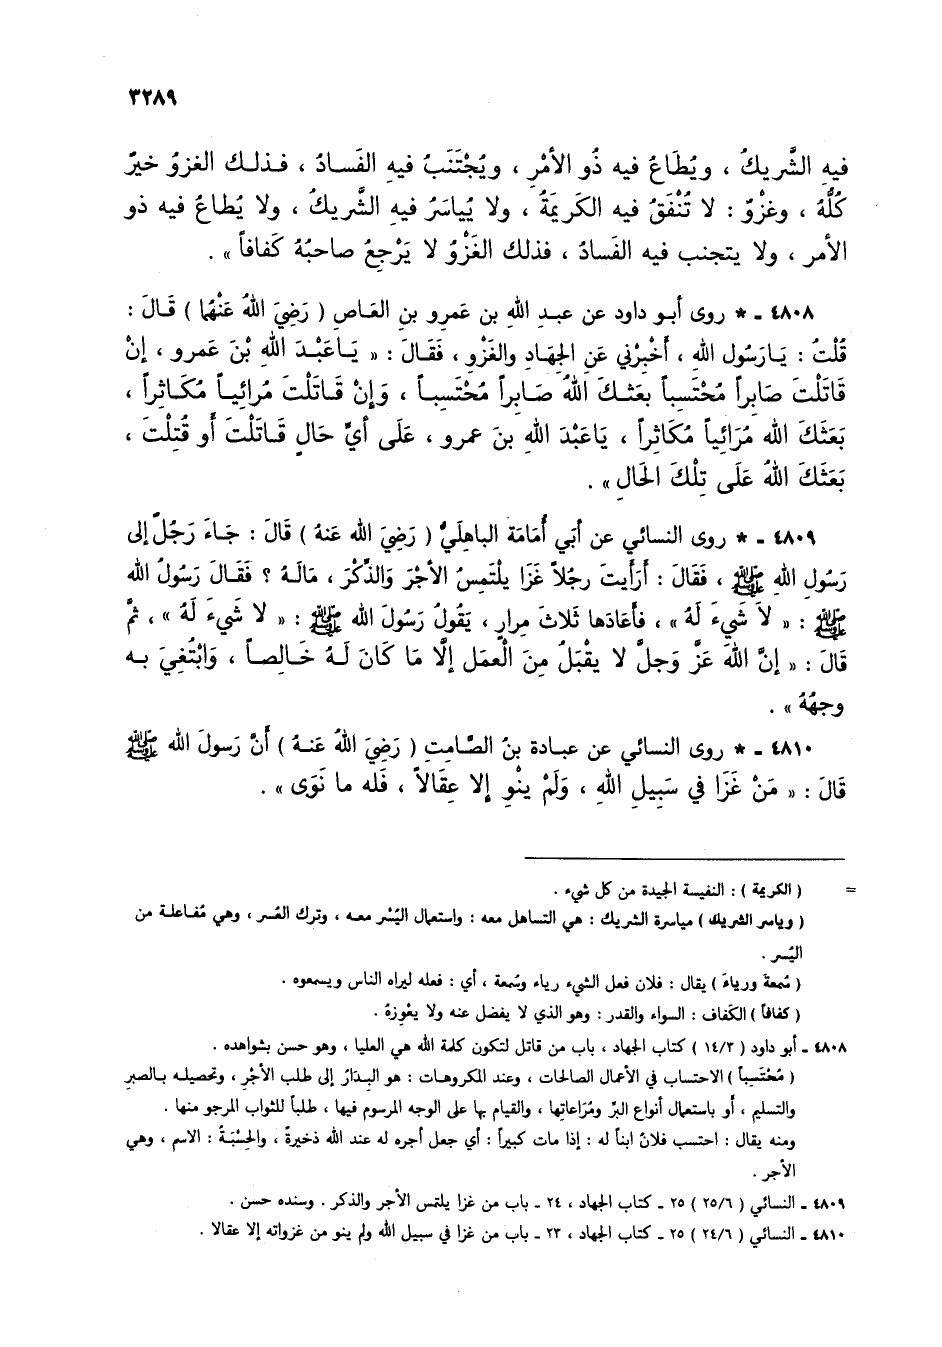 ٣٢٨٩
فيه الشَّريكُ ، ويُطَاعُ فيه ذُو الأمْرِ ، ويُجْتَنَبُ فيه الفَسادُ ، فذلك الغزوُ خيرٌ
كُلُّهُ ، وغزْوٌ : لا تُنْفَقُ فيه الكَريمَةُ ، ولا يُياسَرُ فيهِ الشَّريكُ ، ولا يُطاعُ فيه ذو
الأمر ، ولا يتجنب فيه الفَسادُ ، فذلك الغَزْوُ لا يَرْجِعُ صاحبُهُ كَفافاً » .
٤٨٠٨ - * روى أبو داود عن عبدِ اللهِ بن عَمرو بنِ العَاصِ ( رَضِيَ اللهُ عَنْهُما ) قَالَ :
قُلْتُ : يَارَسُول اللهِ ، أَخْبِرْني عَنِ الجهَادِ والغَزْوِ ، فَقَالَ : « يَاعَبْدَ اللهِ بْنَ عَمرو ، إنْ
قَاتَلْتَ صَابراً مُحْتَسباً بعَثَكَ اللهُ صَابراً مُحْتَسِباً ، وَإنْ قَاتَلْتَ مُرائياً مُكَاثراً ،
بَعَثَكَ الله مُرَائياً مُكَاثراً ، يَاعَبْدَ اللهِ بنَ عمرو ، عَلَى أيِّ حَالٍ قَاتَلْتَ أو قُتِلْتَ ،
بَعَثَكَ اللهُ عَلَى تِلْكَ الحَالِ » .
٤٨٠٩ - * روى النسائي عن أبَي أُمَامَة الباهليِّ ( رَضِيَ الله عَنهُ ) قَالَ : جَاءَ رَجُلٌ إلى
رَسُول اللهِ ﷺ ، فَقَالَ : أَرَأيتَ رجُلاً غَزَا يلْتَمِسُ الأجْرَ وَالذِّكْرَ ، مَالَهُ ؟ فَقَالَ رَسُولُ الله
ﷺ : « لاَ شَيءَ لَهُ » ، فأعَادَها ثَلاثَ مِرارٍ ، يَقُولُ رَسُولُ الله ﷺ : « لا شَيءَ لَهُ » ، ثُمَّ
قَالَ : « إنَّ اللهَ عَزَّ وَجلَّ لا يقْبَلُ مِنَ الْعمَل إلَّا مَا كَانَ لَهُ خَالِصاً ، وَابْتُغيَ بهِ
وجهُهُ » .
٤٨١٠ - * روى النسائي عن عبادة بنُ الصَّامِتِ ( رَضِيَ اللهُ عَنهُ ) أنَّ رَسولَ الله ﷺ
قَالَ : « مَنْ غَزَا في سَبِيلِ اللهِ ، وَلَمْ ينْوِ إلا عِقَالاً ، فَله ما نَوَى » .
= ( الكريمة ) : النفيسة الجيدة من كل شيء .
( وياسر الشريك ) مياسرة الشريك : هي التساهل معه : واستعمال اليُسْر معه ، وترك العُسر ، وهي مُفاعلة من
اليُسر .
( سُمعة ورياء ) يقال : فلان فعل الشيء رياء وسُمعة ، أي : فعله ليراه الناس ويسمعوه .
( كفافاً ) الكَفاف : السواء والقدر : وهو الذي لا يفضل عنه ولا يعْوِزهُ .
٤٨٠٨ - أبو داود ( ١٤/٣ ) كتاب الجهاد ، باب من قاتل لتكون كلمة الله هي العليا ، وهو حسن بشواهده .
( مُحْتَسِباً ) الاحتساب في الأعمال الصالحات ، وعند المكروهات : هو البِدَارُ إلى طلب الأجْرِ ، وتحصيله بالصبر
والتسليم ، أو باستعمال أنواع البرِّ ومُرَاعاتِها ، والقيام بها على الوجه المرسوم فيها ، طلباً للثواب المرجو منها .
ومنه يقال : احتسب فلانٌ ابناً له : إذا مات كبيراً : أي جعل أجره له عند الله ذخيرةً ، والحِسْبَةُ : الاسم ، وهي
الأجر .
٤٨٠٩ - النسائي ( ٢٥/٦ ) ٢٥ - كتاب الجهاد ، ٢٤ - باب من غزا يلتمس الأجر والذكر . وسنده حسن .
٤٨١٠ - النسائي ( ٢٤/٦ ) ٢٥ - كتاب الجهاد ، ٢٣ - باب من غزا في سبيل الله ولم ينو من غزواته إلا عقالا .